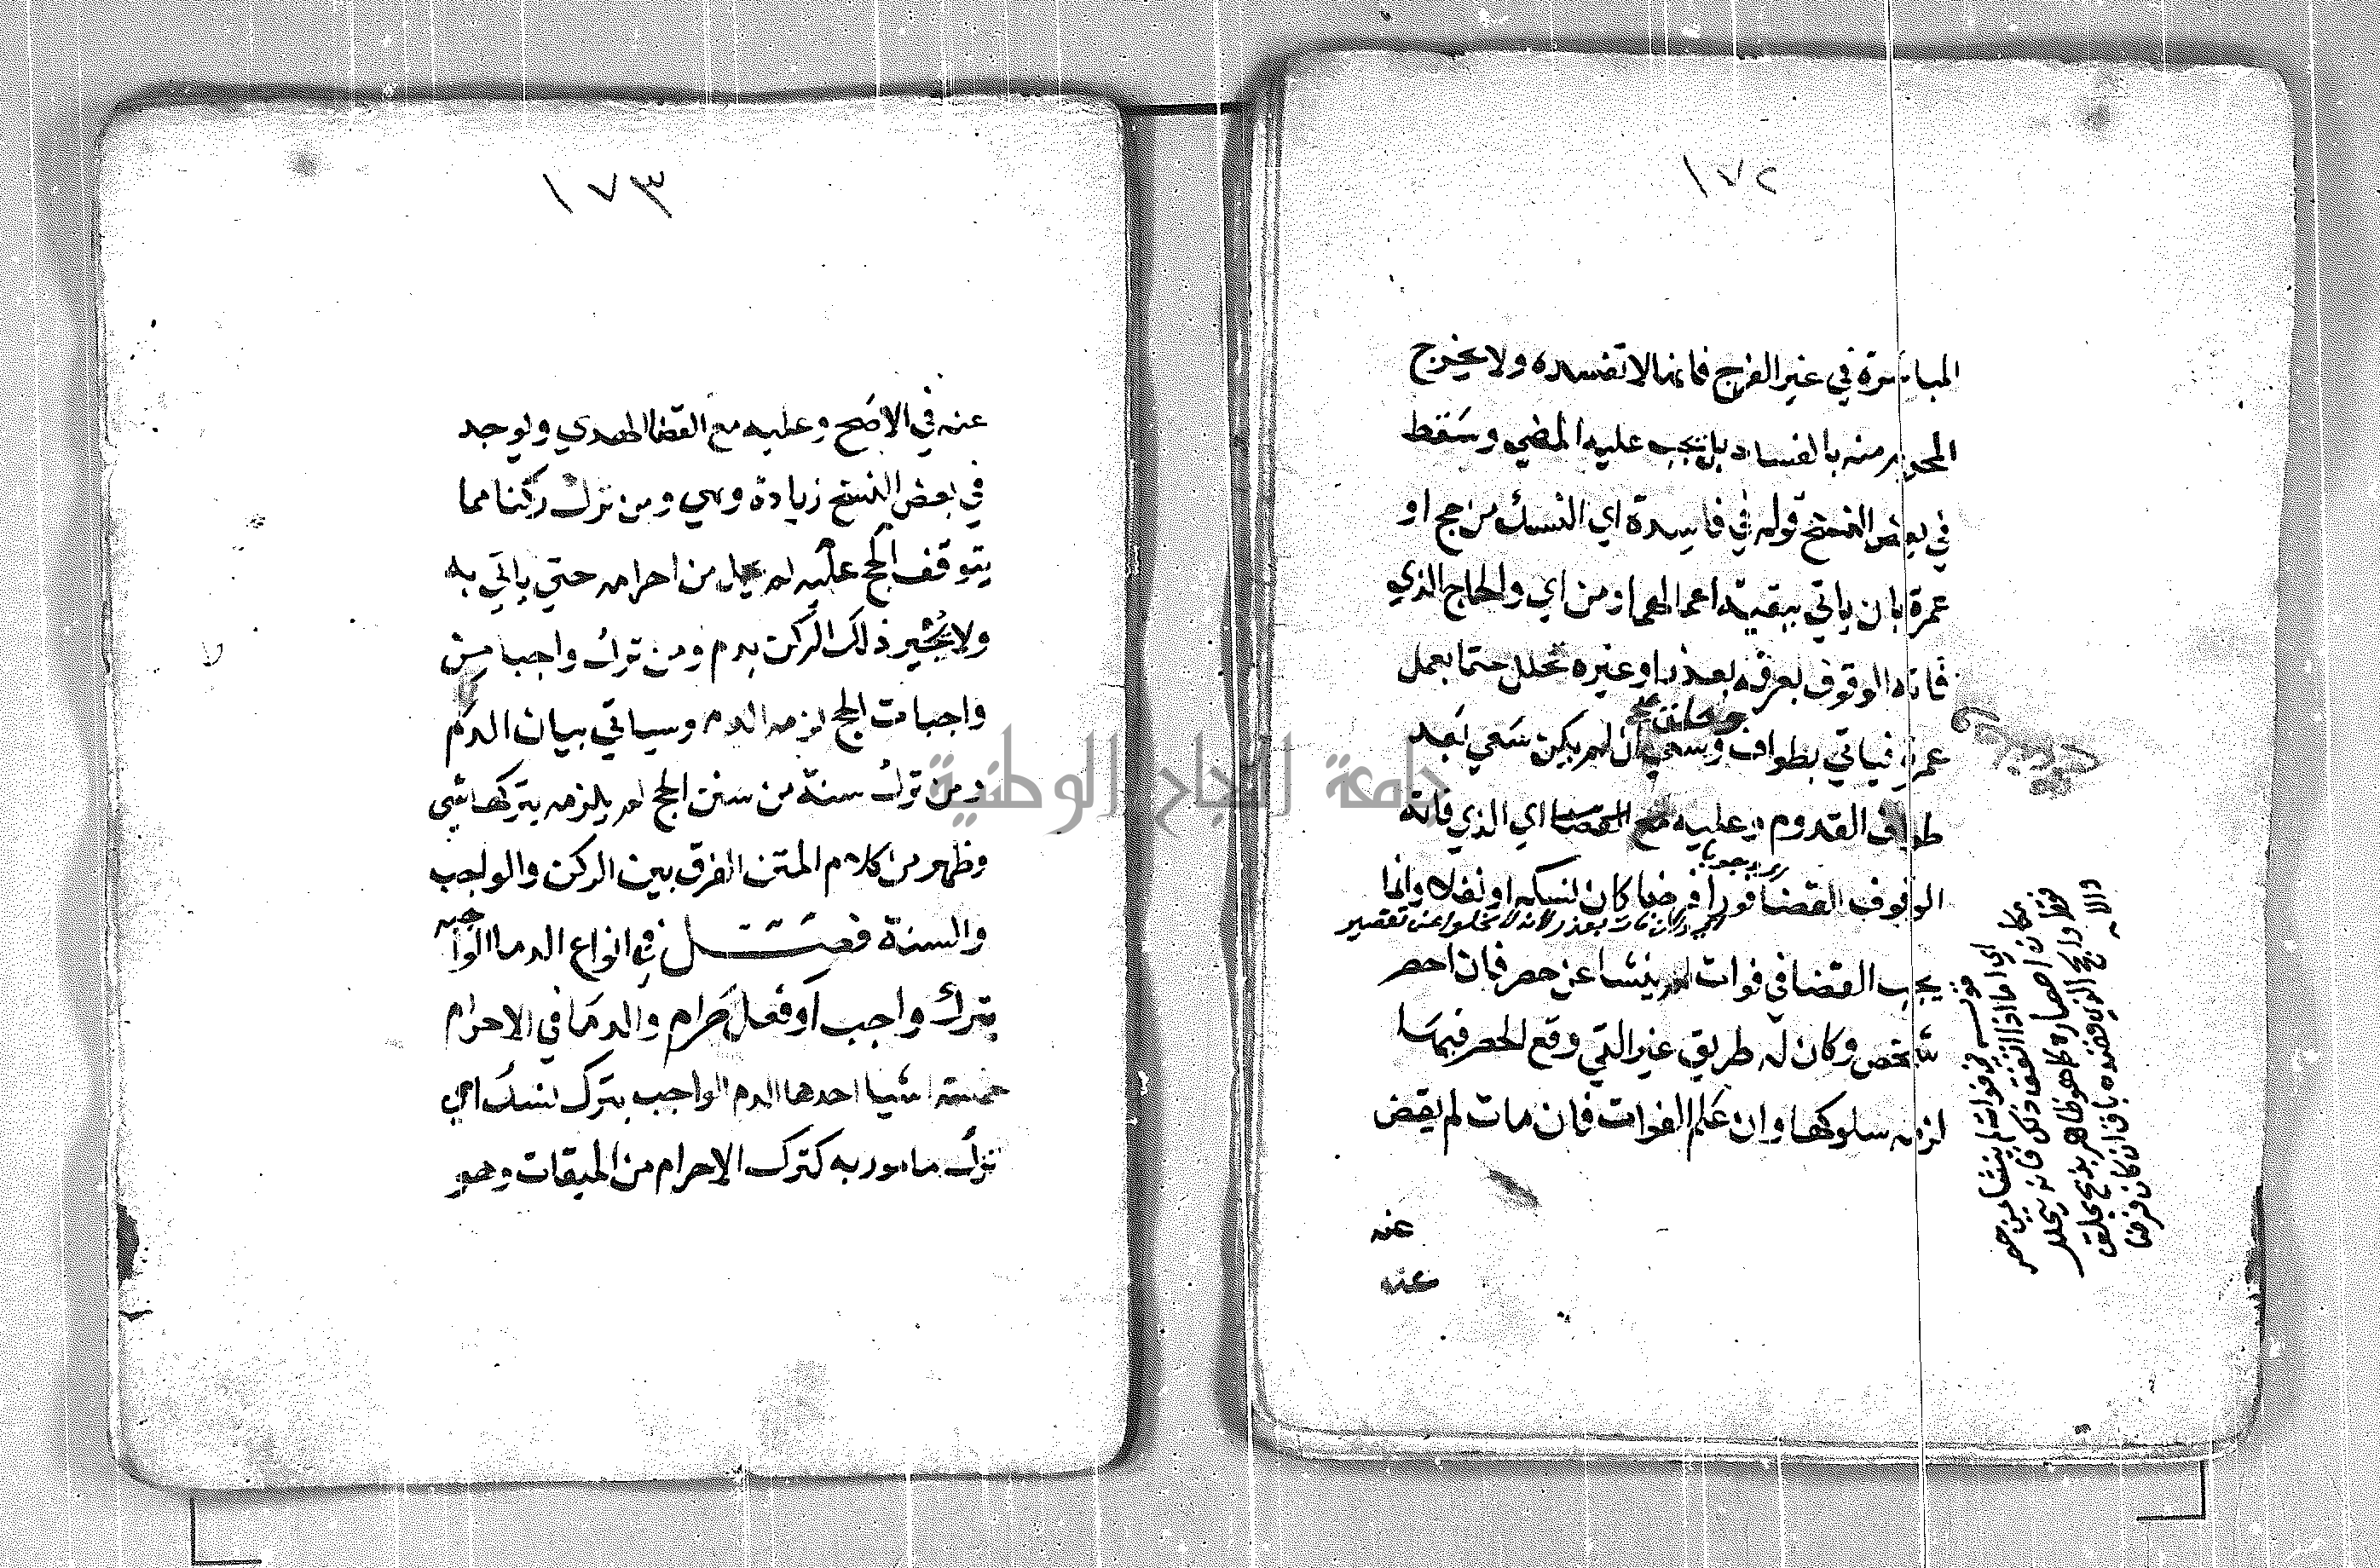 ١٧٢
المباشرة في غير الفرج فانها لا تفسده ولا يخرج
المحرم منه بالفساد بل يجب عليه المضي وسقط
في بعض النسخ قوله في فاسدة اي النسك من حج او
عمرة بان ياتي ببقية اعمالهما ومن اي والحاج الذي
فاته الوقوف بعرفه بعذر او غيره تحلل حتما بعمل
عمرة فياتي بطواف وسعي ان لم يكن سعي بعد
طواف القدوم وعليه مع القضا اي الذي فاته
الوقوف القضا فورا فرضا كان نسكه او نفلا وانما
يجب القضا في فوات لم ينشا عن حصر فان احصر
شخص وكان له طريق غير التي وقع الحصر فيها
لزمه سلوكها وان علم الفوات فان مات لم يقض
عنه
عنه
فوات لم ينشا عن حصر
اي اما اذا
١٧٣
عنه في الاصح وعليه مع القضا الهدي ويوجد
في بعض النسخ زيادة وهي ومن ترك ركنا مما
يتوقف الحج عليه لم يحل من احرامه حتي ياتي به
ولا يجبر ذلك الركن بدم ومن ترك واجبا من
واجبات الحج لزمه الدم وسياتي بيان الدم
ومن ترك سنة من سنن الحج لم يلزمه بتركها شي
وظهر من كلام المتن الفرق بين الركن والواجب
والسنة فصل في انواع الدما الواجبه
بترك واجب او فعل حرام والدما في الاحرام
خمسة اشيا احدها الدم الواجب بترك نسك اي
ترك مامور به كترك الاحرام من الميقات وهو
جامعة النجاح الوطنية